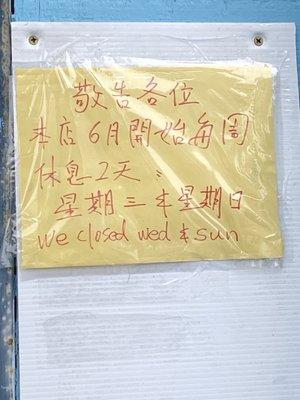 敬告各位
本店6月開始每周
休息2天:
星期三&星期日
we closed wed & sun